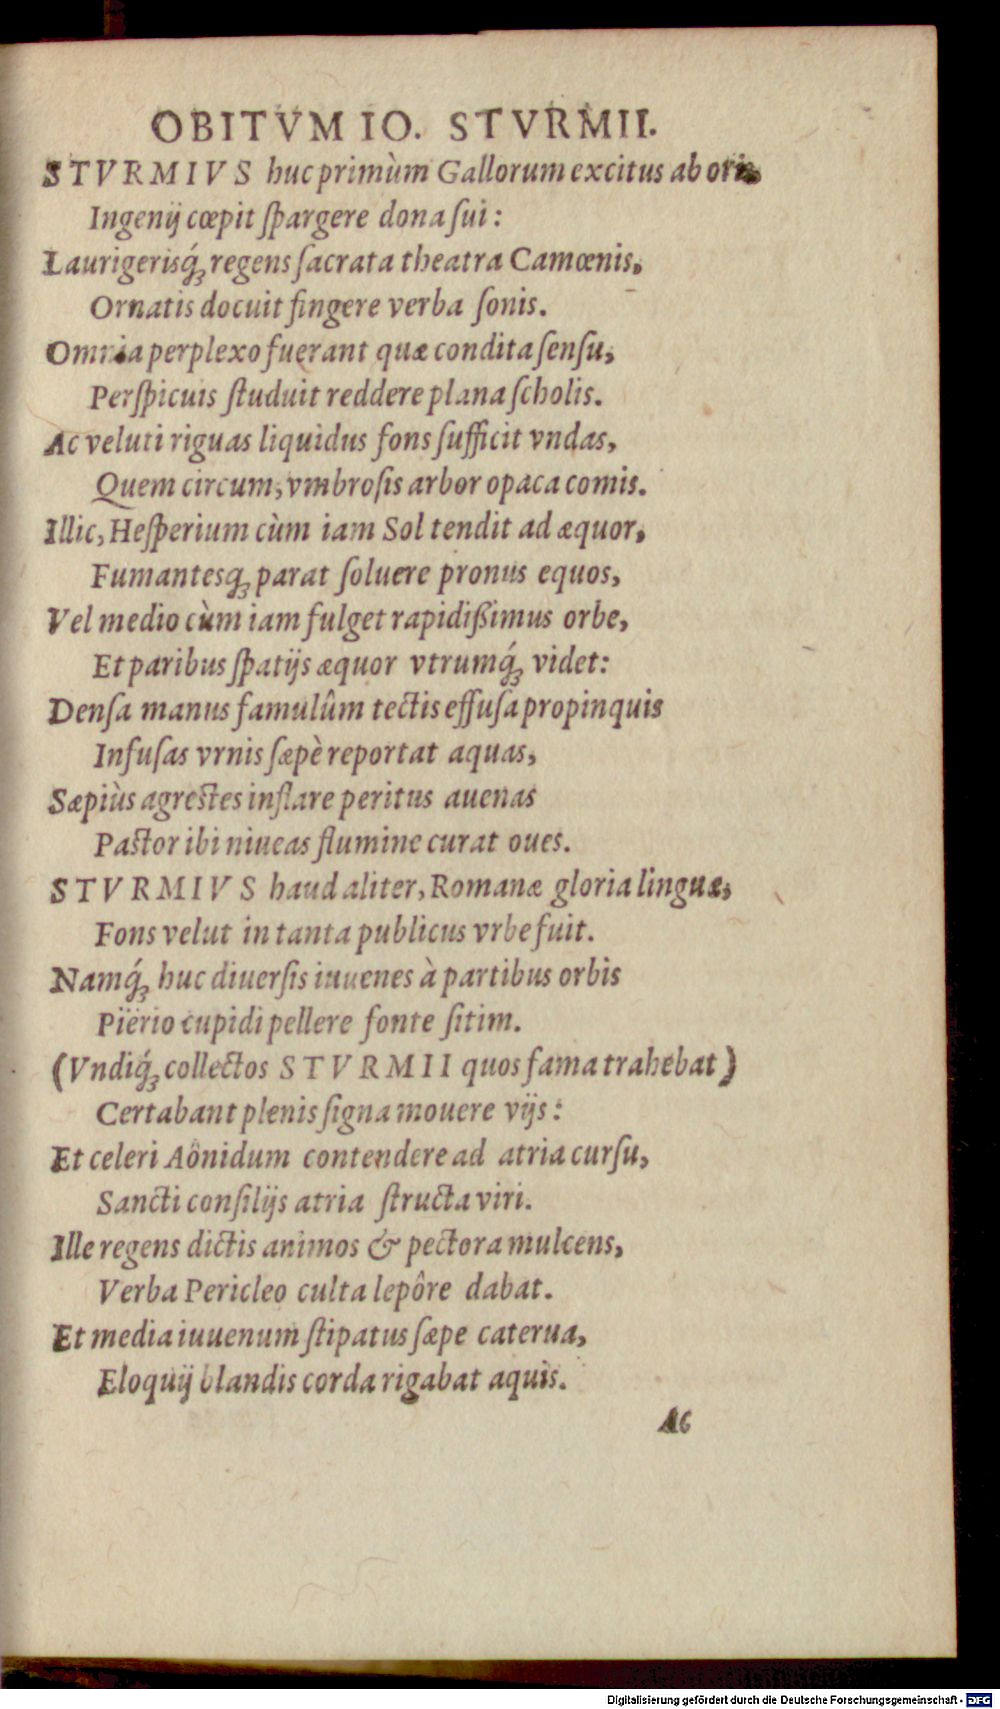 OBITVM IO. STVRMII.
STVRMIVS huc primùm Gallorum excitus ab oris
Ingenij cœpit ſpargere dona ſui:
Laurigerisq́; regens ſacrata theatra Camœnis,
Ornatis docuit fingere verba ſonis.
Omnia perplexo fuerant quæ condita ſenſu,
Perſpicuis ſtuduit reddere plana ſcholis.
Ac veluti riguas liquidus fons ſufficit vndas,
Quem circum, vmbroſis arbor opaca comis.
Illic, Heſperium cùm iam Sol tendit ad æquor,
Fumantesq; parat ſoluere pronus equos,
Vel medio cùm iam fulget rapidißimus orbe,
Et paribus ſpatijs æquor vtrumq́; videt:
Denſa manus famulûm tectis effuſa propinquis
Infuſas vrnis ſæpè reportat aquas,
Sæpiùs agreſtes inflare peritus auenas
Paſtor ibi niueas flumine curat oues.
STVRMIVS haud aliter, Romanæ gloria linguæ,
Fons velut in tanta publicus vrbe fuit.
Namq́; huc diuerſis iuuenes à partibus orbis
Piërio cupidi pellere fonte ſitim.
(Vndiq́; collectos STVRMII quos fama trahebat)
Certabant plenis ſigna mouere vijs:
Et celeri Aônidum contendere ad atria curſu,
Sancti conſilijs atria ſtructa viri.
Ille regens dictis animos & pectora mulcens,
Verba Pericleo culta lepôre dabat.
Et media iuuenum ſtipatus ſæpe caterua,
Eloquij blandis corda rigabat aquis.
Ac
Digitalisierung gefördert durch die Deutsche Forschungsgemeinschaft - DFG